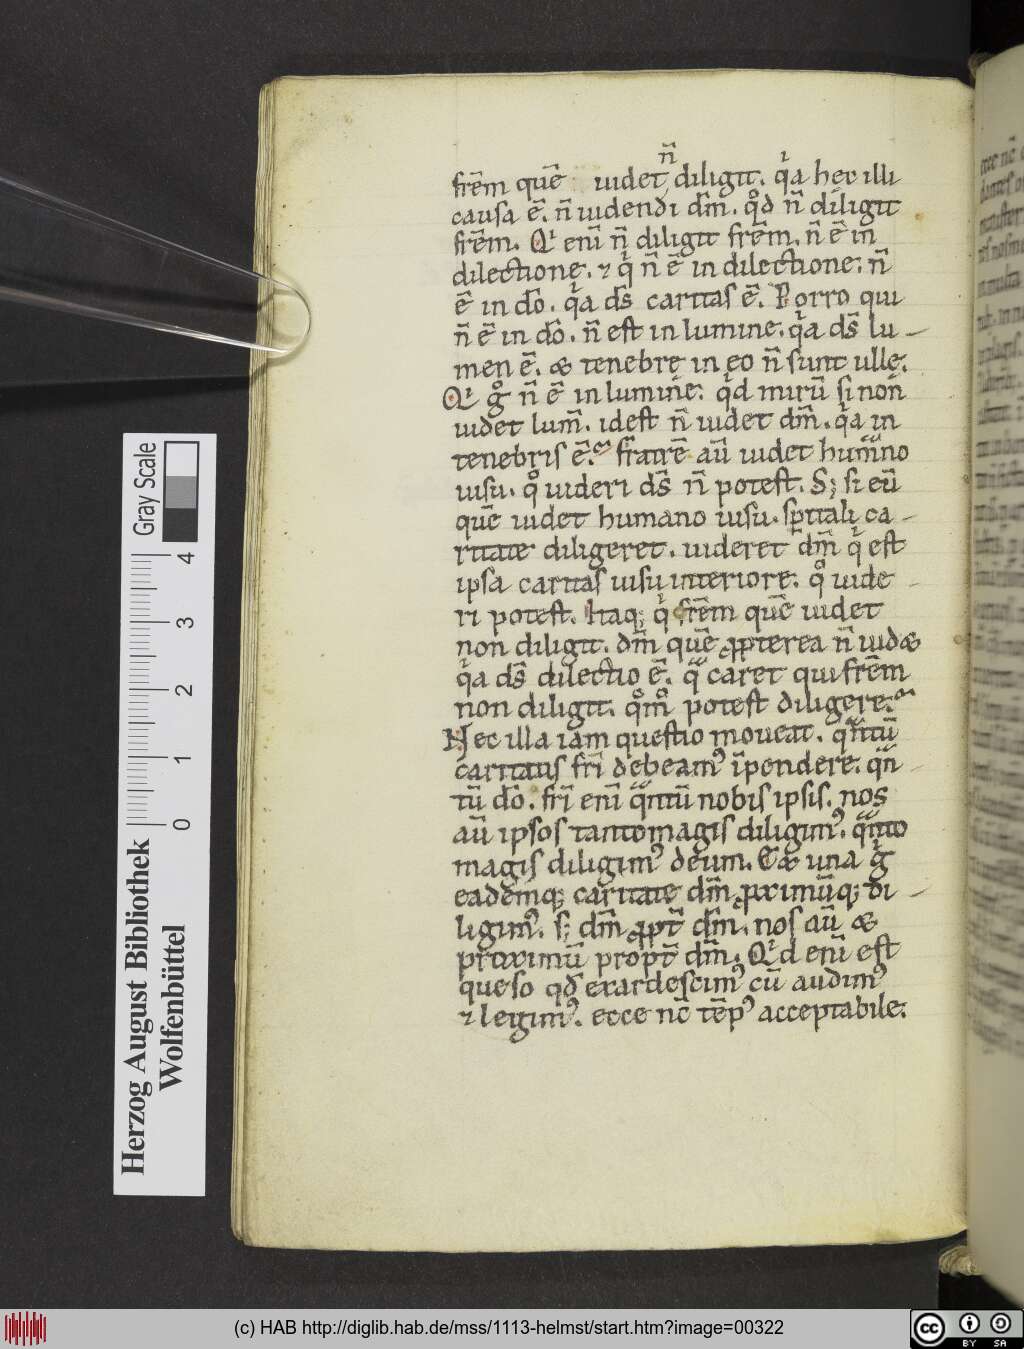 frēm quē uidet n̄ diligit. qͥa hec illi
causa ē. n̄ uidendi dm̄. qͦd n̄ diligit
frēm. Qͥ eni̅ n̄ diligit frēm. n̄ ē in
dilectione. ⁊ qͥ n̄ ē in dilectione: n̄
ē in dō. qͥa ds̄ caritas ē. Porro qui
n̄ ē in dō. n̄ est in lumine. qͥa ds̄ lu-
men ē. & tenebrę in eo n̄ sunt ullę.
Qͥ gͦ n̄ ē in lumine: qͥd mirū si non
uidet lum̄. idest n̄ uidet dm̄. qͥa in
tenebris ē. fratrē aū uidet humᷓno
uisu. qͦ uideri ds̄ n̄ potest. S; si eū
quē uidet humano uisu. spitali ca-
ritate diligeret. uideret dm̄ qͥ est
ipsa caritas uisu interiore. qͦ uide-
ri potest. Itaq; qͥ frēm quē uidet
non diligit. dm̄ quē ꝓpterea n̄ uid&
qͥa ds̄ dilectio ē. qᷓ caret qui frēm
non diligit. qͦmͦ potest diligere.
Nec illa iam questio moueat. qᷓntū
caritatis fri̅ debeamꝰ i̅pendere. qᷓn
tū dō. fri̅ eni̅ qᷓntū nobis ipsis. nos
aū ipsos tantomagis diligimꝰ. qᷓnto
magis diligimꝰ deum. Ex una gͥ
eademq; caritate dm̄ ꝓximūq; di-
ligimꝰ. s; dm̄ ꝓpt̄ dm̄. nos aū &
proximū propt̄ dm̄. Qͥd eni̅ est
queso qd̄ exardescimꝰ cū audimꝰ
⁊ legimꝰ. ecce nc̄ tēpꝰ acceptabile.
Gray Scale
0 1 2 3 4
Herzog August Bibliothek
Wolfenbüttel
(c) HAB http://diglib.hab.de/mss/1113-helmst/start.htm?image=00322
cc BY SA